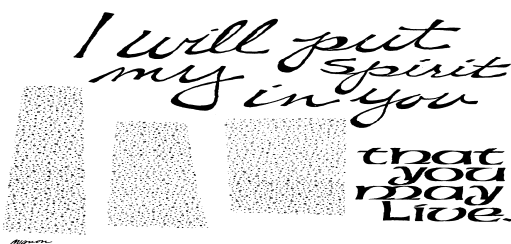 I will put
my spirit
in you
that
you
may
Live.